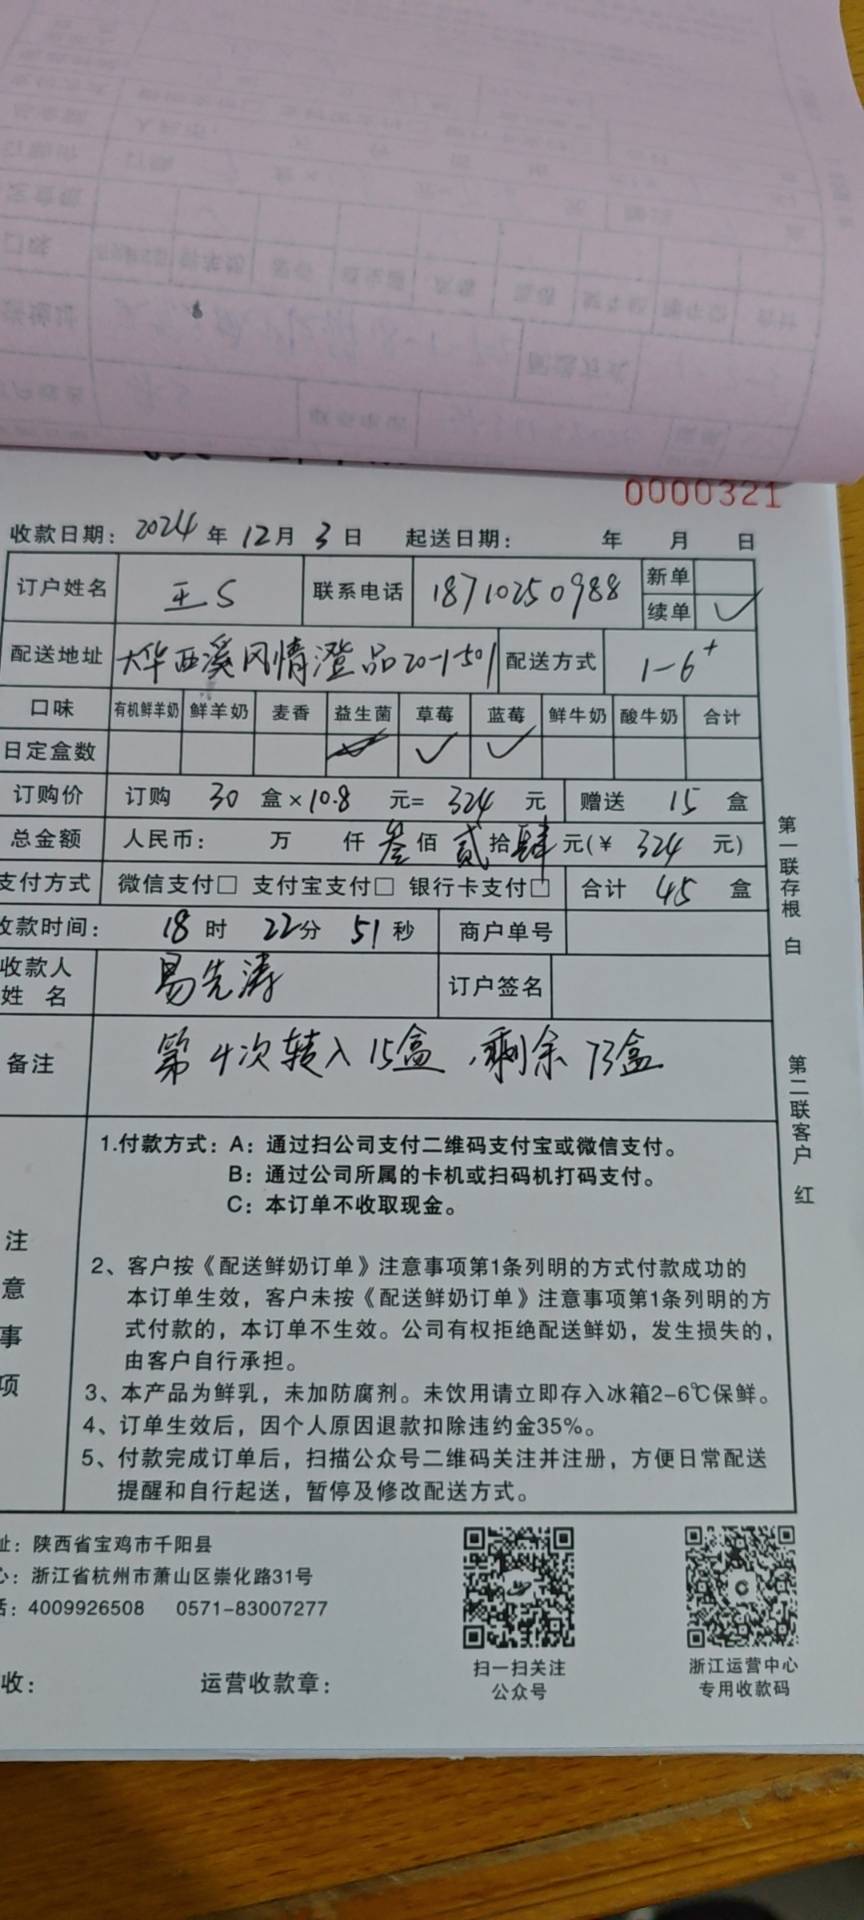 0000321
收款日期：2024年12月3日 起送日期： 年 月 日
订户姓名 王S 联系电话 18710250988 新单
续单 ✓
配送地址 大华西溪风情澄品20-1-501 配送方式 1-6+
口味 有机鲜羊奶 鲜羊奶 麦香 益生菌 草莓 蓝莓 鲜牛奶 酸牛奶 合计
日定盒数 ✓ ✓
订购价 订购 30 盒×10.8 元= 324 元 赠送 15 盒
总金额 人民币： 万 仟叁佰贰拾肆元(¥ 324 元)
支付方式 微信支付□ 支付宝支付□ 银行卡支付□ 合计 45 盒
收款时间： 18时 22分 51秒 商户单号
收款人
姓 名 易先涛 订户签名
备注 第4次转入15盒，剩余73盒
注意事项
1.付款方式：A：通过扫公司支付二维码支付宝或微信支付。
B：通过公司所属的卡机或扫码机打码支付。
C：本订单不收取现金。
2、客户按《配送鲜奶订单》注意事项第1条列明的方式付款成功的
本订单生效，客户未按《配送鲜奶订单》注意事项第1条列明的方
式付款的，本订单不生效。公司有权拒绝配送鲜奶，发生损失的，
由客户自行承担。
3、本产品为鲜乳，未加防腐剂。未饮用请立即存入冰箱2-6℃保鲜。
4、订单生效后，因个人原因退款扣除违约金35%。
5、付款完成订单后，扫描公众号二维码关注并注册，方便日常配送
提醒和自行起送，暂停及修改配送方式。
第一联存根 白
第二联客户 红
址：陕西省宝鸡市千阳县
心：浙江省杭州市萧山区崇化路31号
话：4009926508 0571-83007277
收： 运营收款章：
扫一扫关注
公众号
浙江运营中心
专用收款码